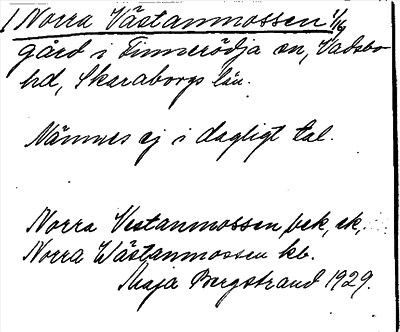 Norra Västanmossen 1/16
gård i Finnerödja sn, Vadsbo
hd, Skaraborgs län.
Nämnes ej i dagligt tal.
Norra Vestanmossen jbek, ek,
Norra Wästanmossen kb.
Maja Bergstrand 1929.